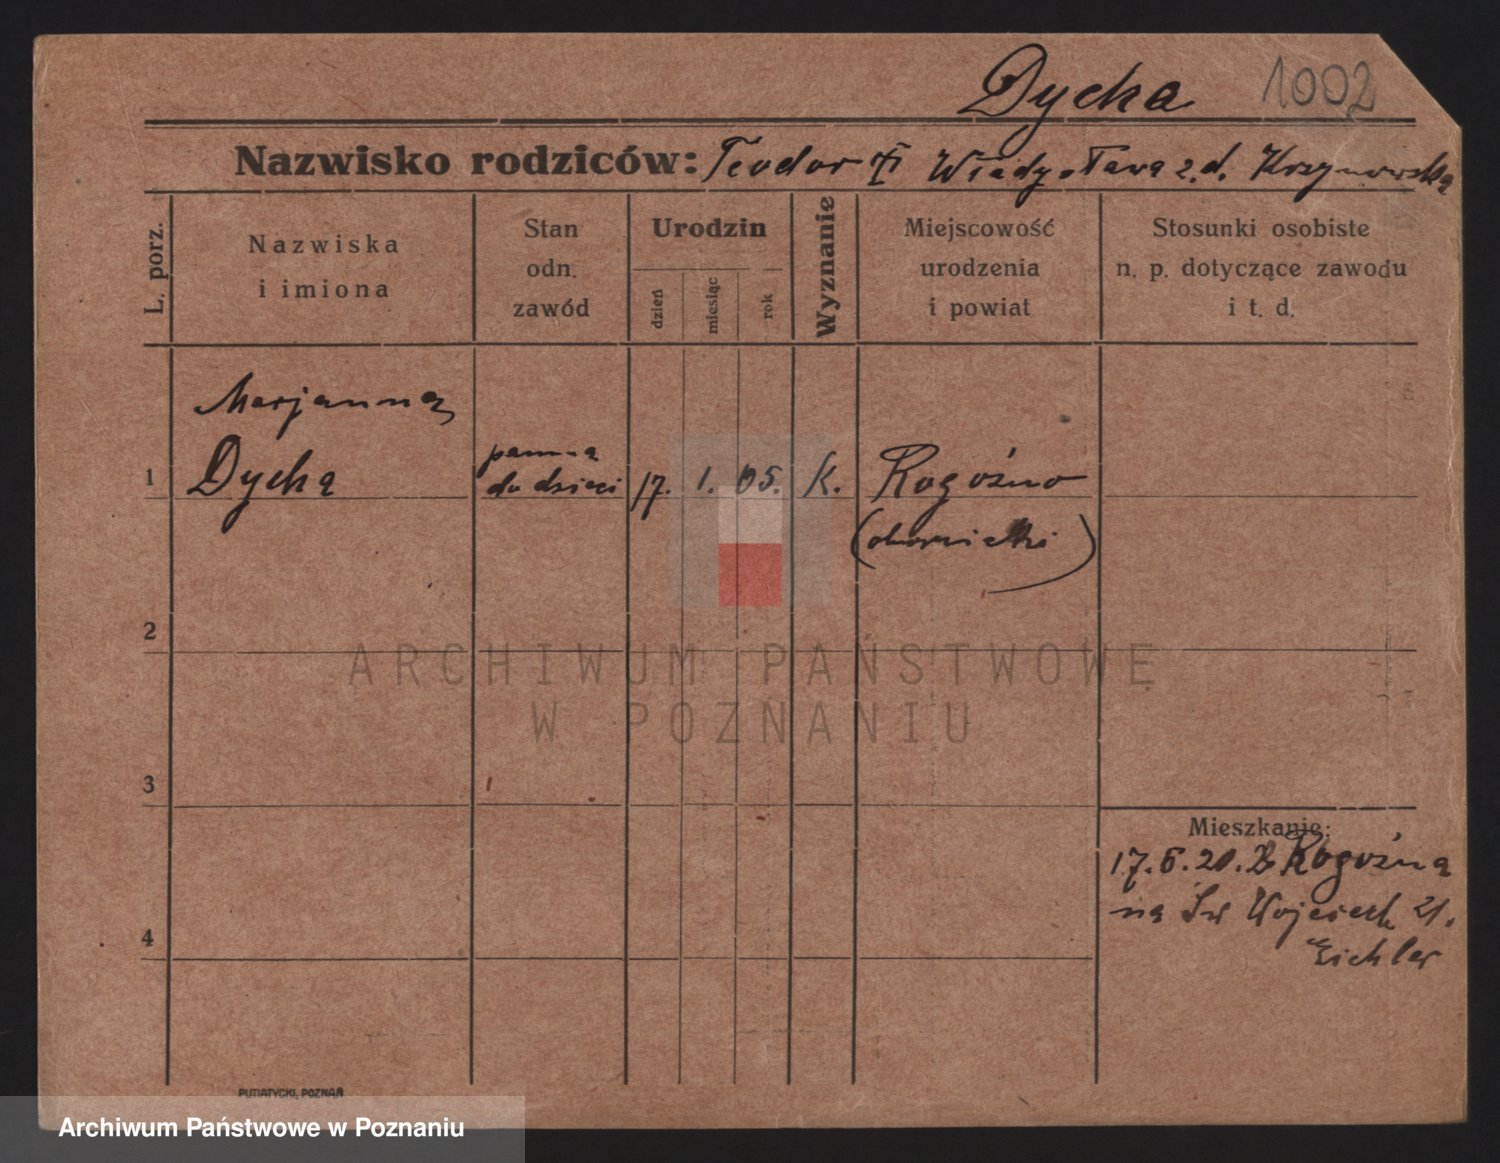 Dycka 1002
Nazwisko rodziców: Teodor i Władysława z. d. Krzynowska
L. porz.
Nazwiska
i imiona
Stan
odn.
zawód
Urodzin
dzień
miesiąc
rok
Wyznanie
Miejscowość
urodzenia
i powiat
Stosunki osobiste
n. p. dotyczące zawodu
i t. d.
Marjanna
1 Dycka panna do dzieci 17. 1. 05. K. Rogoźno
(obornicki)
2
3
4
Mieszkanie:
17.6.20. Z Rogoźna
na Św Wojciech 21.
Eichler
PUTIATYCKI, POZNAŃ
ARCHIWUM PAŃSTWOWE
W POZNANIU
Archiwum Państwowe w Poznaniu